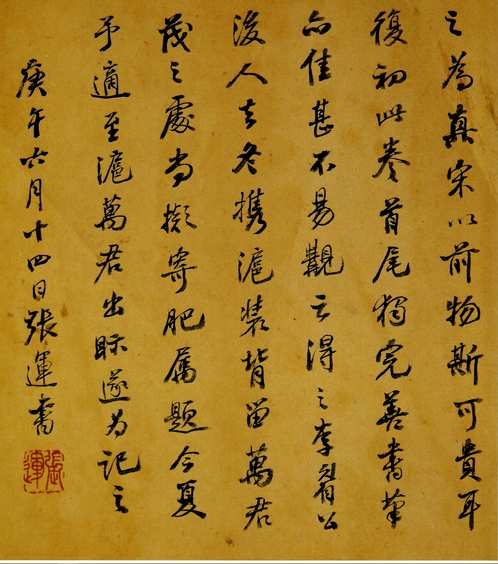 之為真宋以前物斯可貴耳
復初此卷首尾獨完善書筆
亦佳甚不易觀云得之李公
後人去冬攜滬裝背留萬君
茂之處尚擬寄肥屬題今夏
予適至滬萬君出眎遂为記之
庚午六月十四日張運書
張運